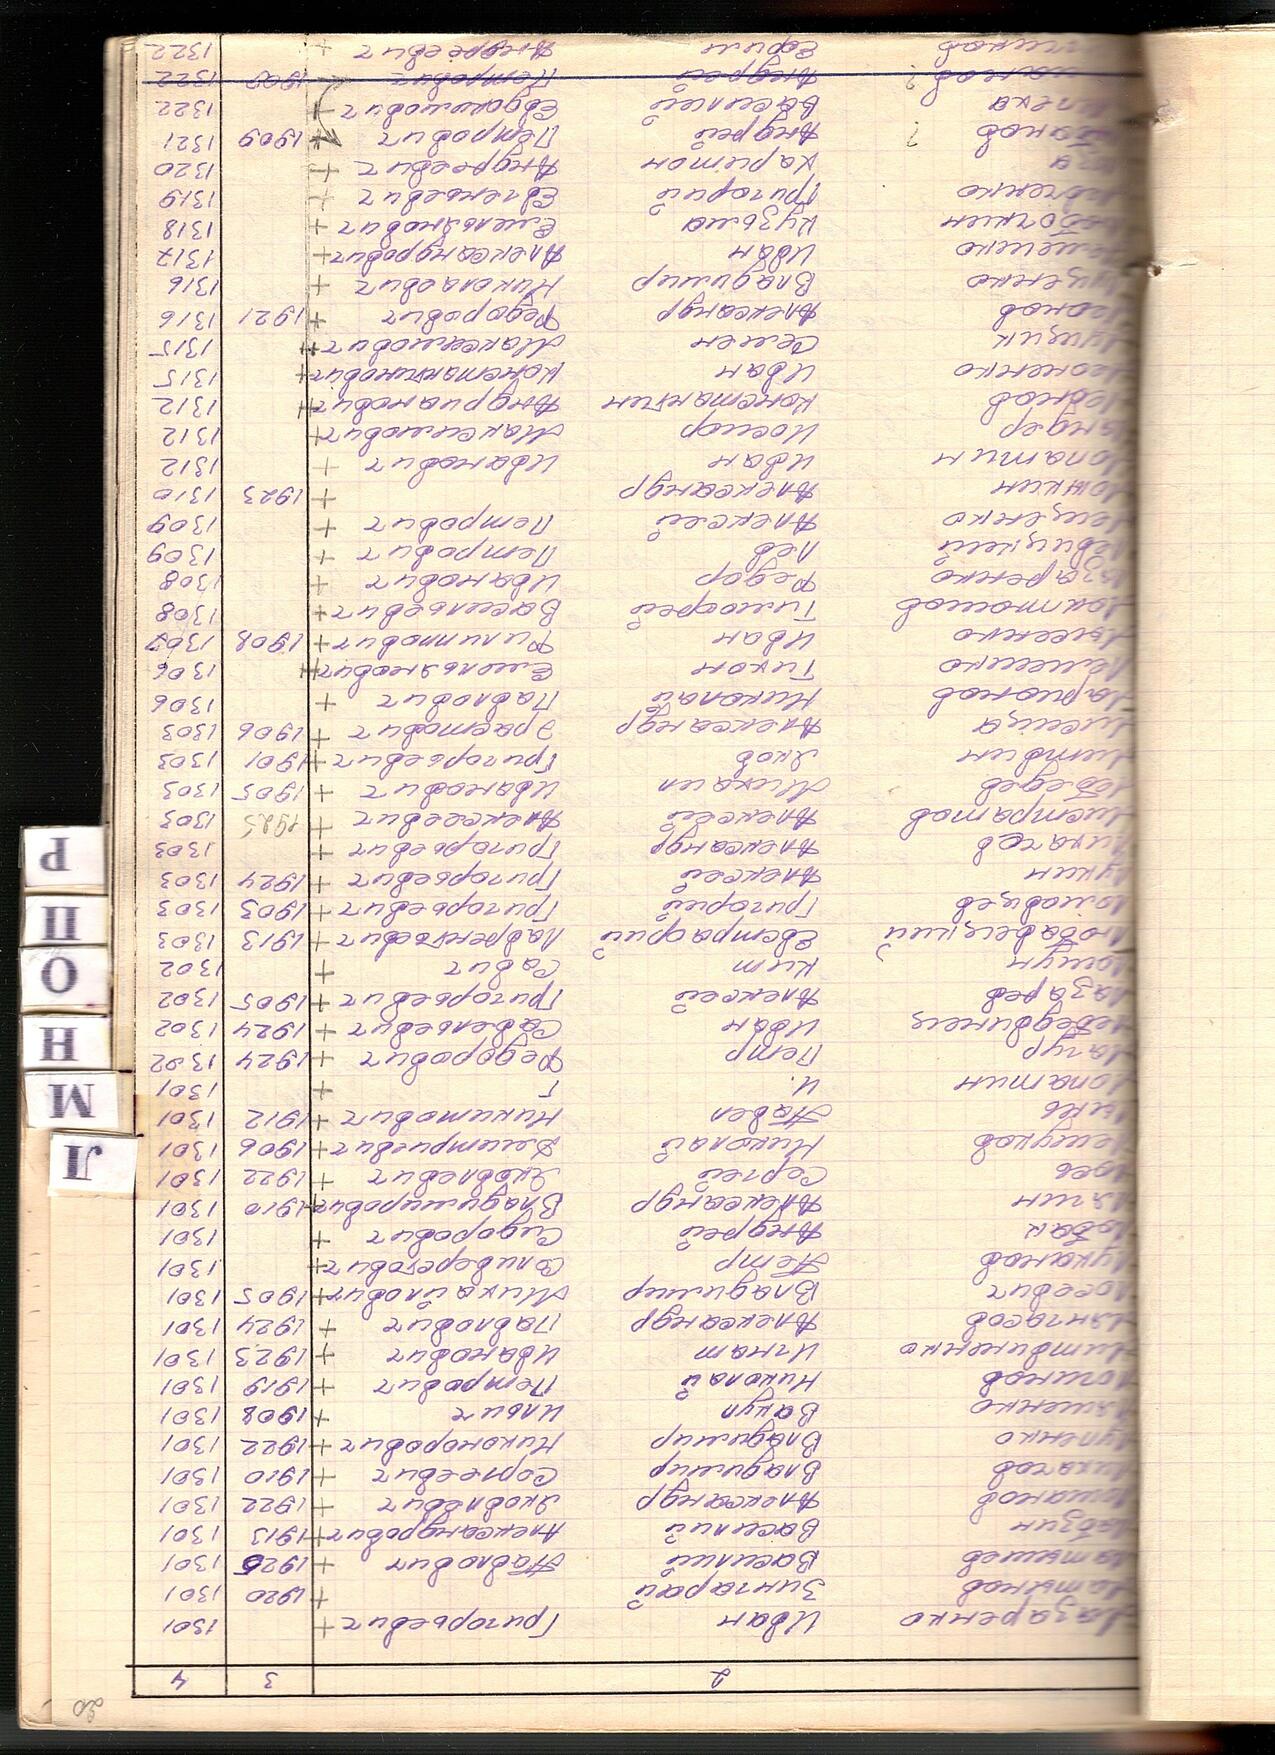 20
2 3 4
Лазаренко Иван Григорьевич + 1301
Латынов Зингарай + 1920 1301
Латышев Василий Павлович + 1925 1301
Лабзин Василий Александрович + 1913 1301
Лошаков Александр Яковлевич + 1922 1301
Лихачов Владимир Сергеевич + 1910 1301
Лупенко Владимир Никонорович + 1922 1301
Ляшенко Вакул Ильич + 1908 1301
Логинов Николай Петрович + 1919 1301
Литвиненко Игнат Иванович + 1923 1301
Лянгасов Александр Павлович + 1924 1301
Лосевич Владимир Михайлович + 1905 1301
Луканов Петр Селиверстович + 1301
Лобак Андрей Сидорович + 1301
Лягин Александр Владимирович + 1910 1301
Лоев Сергей Яковлевич + 1922 1301
Лещуков Николай Дмитриевич + 1906 1301
Павел Никитович + 1912 1301
Лопатин И. Г + 1301
Лагур Петр Федорович + 1924 1302
Лебединец Иван Савельевич + 1924 1302
Лазарев Алексей Григорьевич + 1905 1302
Лощун Ким Савич + 1302
Любавецкий ? Евстрафий ? Лаврентьевич + 1913 1303
Ломовцев Григорий Григорьевич + 1903 1303
Лукин Алексей Григорьевич + 1924 1303
Лихачев Александр Григорьевич + 1303
Листратов Алексей Алексеевич + 1925 1303
Лебедев Михаил Иванович + 1905 1303
Литвин Яков Григорьевич + 1901 1303
Лисица Александр Эрастович + 1906 1303
Ларионов Николай Павлович + 1306
Лемешко Тихон Емельянович + 1306
Лысенко Иван Филиппович + 1908 1307
Локтюшов Тимофей Васильевич + 1308
Лазаренко Федор Иванович + 1308
Левицкий Лев Петрович + 1309
Лещенко Алексей Петрович + 1309
Ложкин Александр + 1923 1310
Лопатин Иван Иванович + 1312
Ландер Иосиф Максимович + 1312
Лобков Константин Андрианович + 1312
Леоненко Иван Константинович + 1315
Лущик Семен Максимович + 1315
Леонов Александр Федорович + 1921 1316
Луценко Владимир Николаевич + 1316
Лемешко Иван Александрович + 1317
Лебочкин Кузьма Емельянович + 1318
Левченко Григорий Евгеньевич + 1319
Харитон Андреевич + 1320
Лобанов ? Андрей Петрович + 1909 1321
Василий Евдокимович + 1322
? Андрей Петрович 1909 1322
Ефим Андреевич + 1322
Л
М
Н
О
П
Р